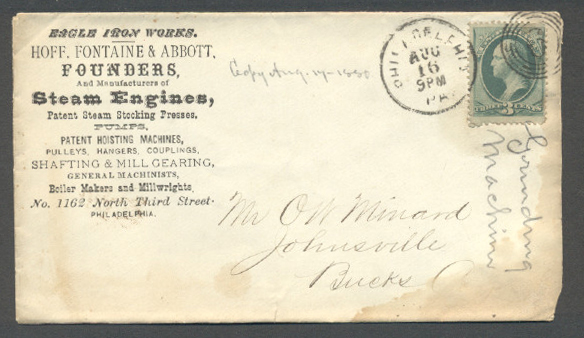 EAGLE IRON WORKS.
HOFF, FONTAINE & ABBOTT,
FOUNDERS,
And Manufacturers of
Steam Engines,
Patent Steam Stocking Presses,
PUMPS,
PATENT HOISTING MACHINES,
PULLEYS, HANGERS, COUPLINGS,
SHAFTING & MILL GEARING,
GENERAL MACHINISTS,
Boiler Makers and Millwrights,
No. 1162 North Third Street
PHILADELPHIA.
Copy Aug. 17-1880
PHILADELPHIA
AUG
16
9PM
PA.
THREE 3 CENTS
Grinding
Machine
Mr O W Minard
Johnsville
Bucks C